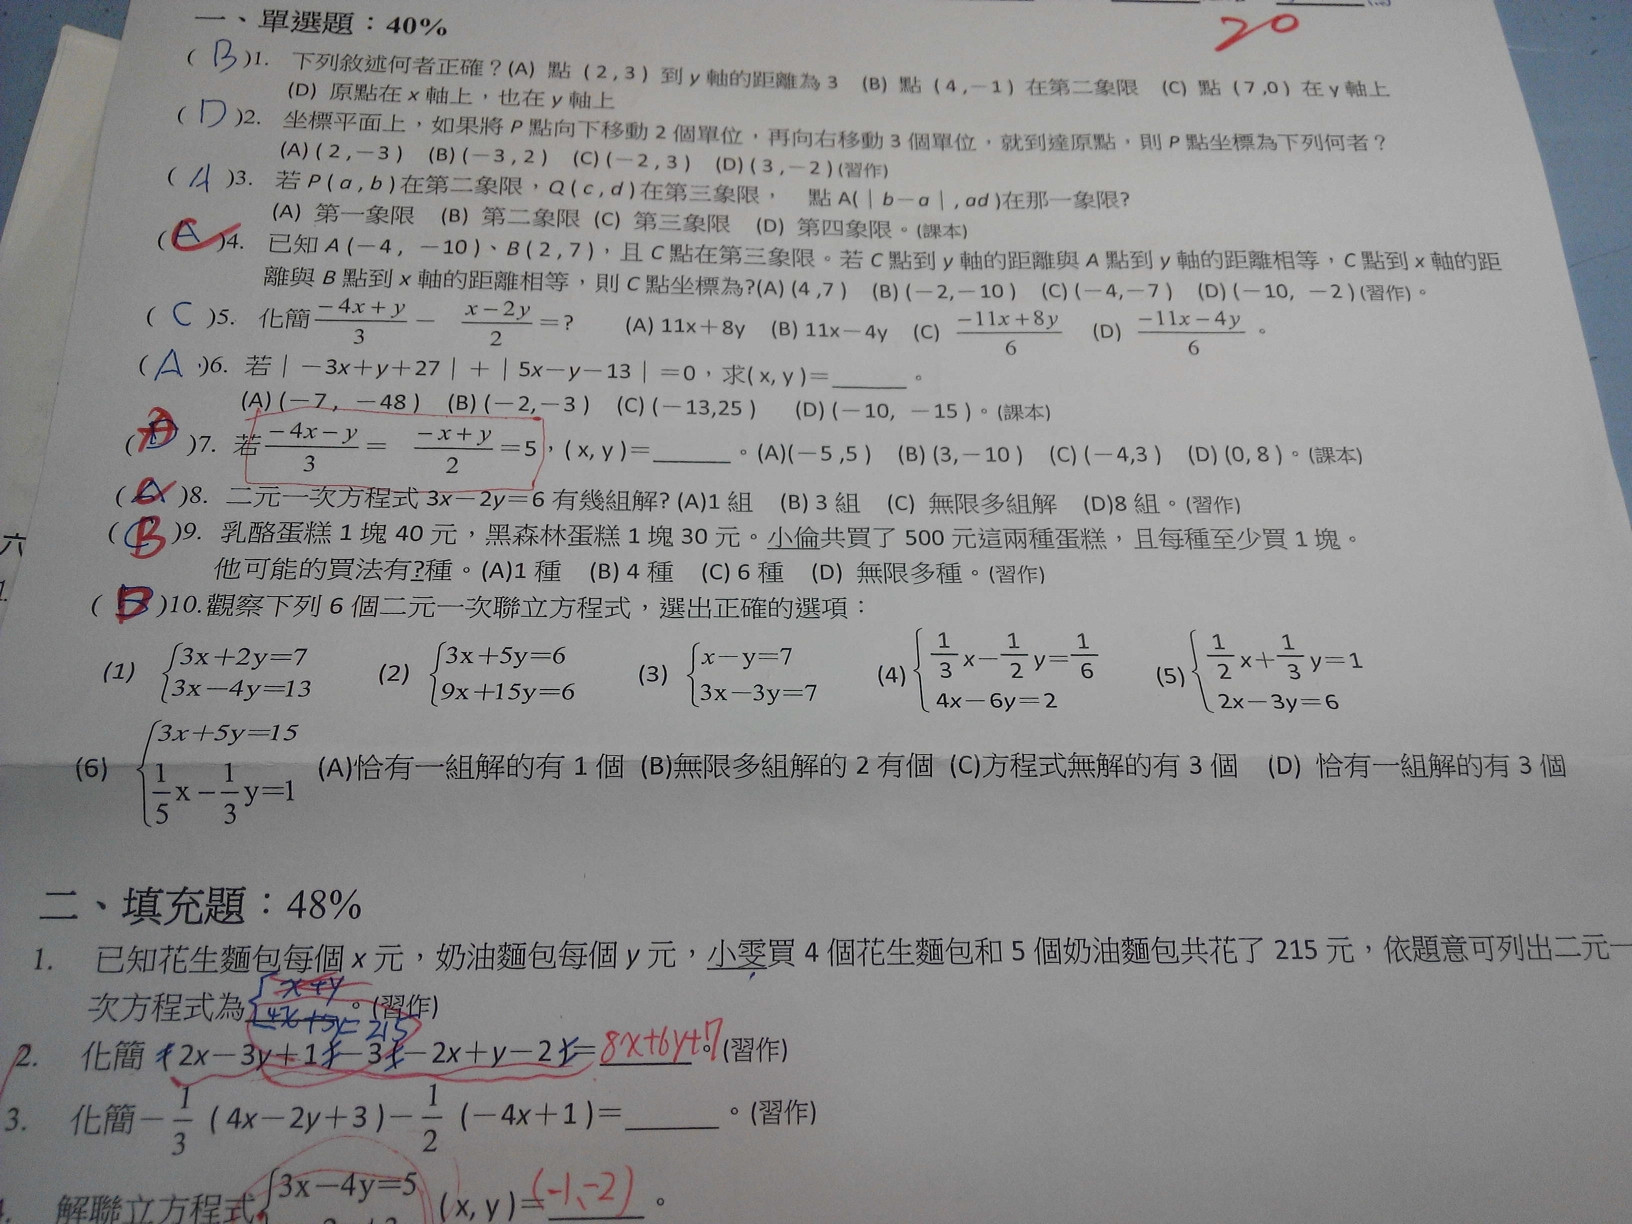 一、單選題：40%
20
( B )1. 下列敘述何者正確？(A) 點 ( 2 , 3 ) 到 y 軸的距離為 3 (B) 點 ( 4 ,−1 ) 在第二象限 (C) 點 ( 7 ,0 ) 在 y 軸上
(D) 原點在 x 軸上，也在 y 軸上
( D )2. 坐標平面上，如果將 P 點向下移動 2 個單位，再向右移動 3 個單位，就到達原點，則 P 點坐標為下列何者？
(A) ( 2 ,−3 ) (B) (−3 , 2 ) (C) (−2 , 3 ) (D) ( 3 ,−2 ) (習作)
( A )3. 若 P ( a , b ) 在第二象限，Q ( c , d ) 在第三象限， 點 A(｜b−a｜, ad )在那一象限?
(A) 第一象限 (B) 第二象限 (C) 第三象限 (D) 第四象限。(課本)
( A C )4. 已知 A (−4 , −10 )、B ( 2 , 7 )，且 C 點在第三象限。若 C 點到 y 軸的距離與 A 點到 y 軸的距離相等，C 點到 x 軸的距
離與 B 點到 x 軸的距離相等，則 C 點坐標為?(A) (4 ,7 ) (B) (−2,−10 ) (C) (−4,−7 ) (D) (−10, −2 ) (習作)。
( C )5. 化簡 (−4x+y)/3 − (x−2y)/2 =? (A) 11x+8y (B) 11x−4y (C) (−11x+8y)/6 (D) (−11x−4y)/6 。
( A )6. 若｜−3x+y+27｜+｜5x−y−13｜=0，求( x, y )=______。
(A) (−7, −48 ) (B) (−2,−3 ) (C) (−13,25 ) (D) (−10, −15 )。(課本)
( D A )7. 若 (−4x−y)/3 = (−x+y)/2 =5，( x, y )=______。(A)(−5 ,5 ) (B) (3,−10 ) (C) (−4,3 ) (D) (0, 8 )。(課本)
( A C )8. 二元一次方程式 3x−2y=6 有幾組解? (A)1 組 (B) 3 組 (C) 無限多組解 (D)8 組。(習作)
( C B )9. 乳酪蛋糕 1 塊 40 元，黑森林蛋糕 1 塊 30 元。小倫共買了 500 元這兩種蛋糕，且每種至少買 1 塊。
他可能的買法有?種。(A)1 種 (B) 4 種 (C) 6 種 (D) 無限多種。(習作)
( B )10.觀察下列 6 個二元一次聯立方程式，選出正確的選項：
(1) {3x+2y=7 (2) {3x+5y=6 (3) {x−y=7 (4) {1/3 x−1/2 y=1/6 (5) {1/2 x+1/3 y=1
3x−4y=13 9x+15y=6 3x−3y=7 4x−6y=2 2x−3y=6
{3x+5y=15
(6) 1/5 x−1/3 y=1 (A)恰有一組解的有 1 個 (B)無限多組解的 2 有個 (C)方程式無解的有 3 個 (D) 恰有一組解的有 3 個
二、填充題：48%
1. 已知花生麵包每個 x 元，奶油麵包每個 y 元，小雯買 4 個花生麵包和 5 個奶油麵包共花了 215 元，依題意可列出二元一
x+y
次方程式為 4x+5y=215 。(習作)
2. 化簡 (2x−3y+1)−3(−2x+y−2)= 8x+6y+7 。(習作)
3. 化簡−1/3 ( 4x−2y+3 )−1/2 (−4x+1 )=______。(習作)
解聯立方程式 {3x−4y=5 ( x, y )= (-1,-2) 。